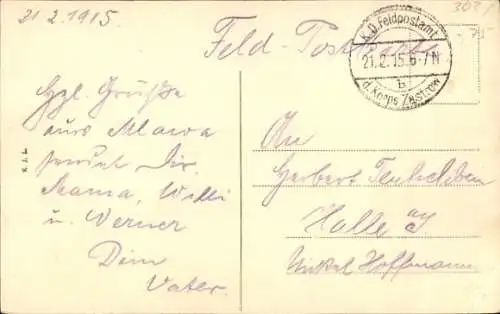 21 2. 1915.
Feld-Postkarte
K.D. Feldpostamt
21.2.15.6-7N
b
d. Korps Zastrow
Hzl. Grüße
aus Mlawa
sendet Dir,
Mama, Willi
u. Werner
Dein
Vater.
An
Herbert
Halle a/S
Hoffmann